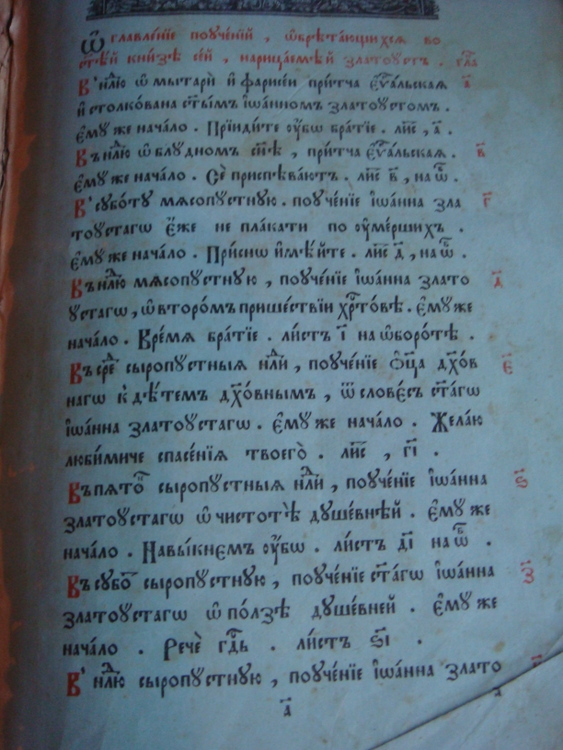 Ѡ҆главле́нїе поꙋче́нїй , ѡ҆брѣта́ющихсѧ во
ст҃ѣ́й кни́зѣ се́й , нарица́емѣй златоꙋ́стъ . гл҃а
В̾ нл҃ю ѡ҆ мытарѝ и҆ фарисе́и при́тча є҆ѵⷢ҇альская а҃
и҆ столкова́на ст҃ы́мъ і҆ѡа́нномъ златоꙋ́стомъ .
є҆мꙋ́же нача́ло . Прїиди́те ᲂу҆̀бо бра́тїе . ли́с , а҃ .
Въ нл҃ю ѡ҆ блꙋ́дномъ сн҃ѣ , при́тча є҆ѵⷢ҇альская . в҃
є҆мꙋ́же нача́ло . Сѐ приспѣва́ютъ . ли́с в҃ , на ѡ҆б .
В̾ сꙋбо́тꙋ мѧсопꙋ́стнꙋю . поꙋче́нїе і҆ѡа́нна зла г҃
тоꙋ́стагѡ є҆́же не пла́кати по ᲂу҆ме́ршихъ .
є҆мꙋ́же нача́ло . При́снѡ и҆мѣ́йте . ли́с д҃ , на ѡ҆б .
Въ нл҃ю мѧсопꙋ́стнꙋю , поꙋче́нїе і҆ѡа́нна злато д҃
ꙋ́стагѡ , ѡ҆ второ́мъ прише́ствїи хрⷭ҇то́вѣ . є҆мꙋ́же
нача́ло . Вре́мѧ бра́тїе . ли́стъ і҃ на ѡ҆боро́тѣ .
Въ сре сыропꙋ́стныѧ нл҃и , поꙋче́нїе ѻ҆ц҃а̀ дх҃о́в е҃
наго к̾ дѣ́темъ дх҃о́внымъ , ѿ слове́съ ст҃а́гѡ
і҆ѡа́нна златоꙋ́стагѡ . є҆мꙋ́же нача́ло . Жела́ю
люби́миче спасе́нїѧ твоегѡ̀ . ли́с , г҃і .
Въ пѧто́ сыропꙋ́стныѧ нл҃и , поꙋче́нїе і҆ѡа́нна ѕ҃
златоꙋ́стагѡ ѡ҆ чистотѣ̀ дꙋше́внѣй . є҆мꙋ́же
нача́ло . Навы́кнемъ ᲂу҆̀бо . ли́стъ д҃і на ѡ҆б .
Въ сꙋбо сыропꙋ́стнꙋю , поꙋче́нїе ст҃а́гѡ і҆ѡа́нна з҃
златоꙋ́стагѡ ѡ҆ по́лзѣ дꙋше́вней . є҆мꙋ́же
нача́ло . Речѐ гд҇ь . ли́стъ ѕ҃і .
В̾ нл҃ю сыропꙋ́стнꙋю , поꙋче́нїе і҆ѡа́нна злато
а҃